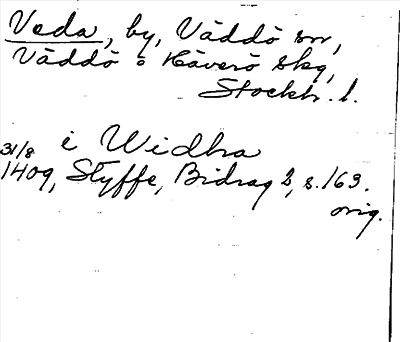 Veda, by, Väddö sn,
Väddö o Häverö skg,
Stockh. l.
i Widha
31/8
1409, Styffe, Bidrag 2, s. 163.
orig.